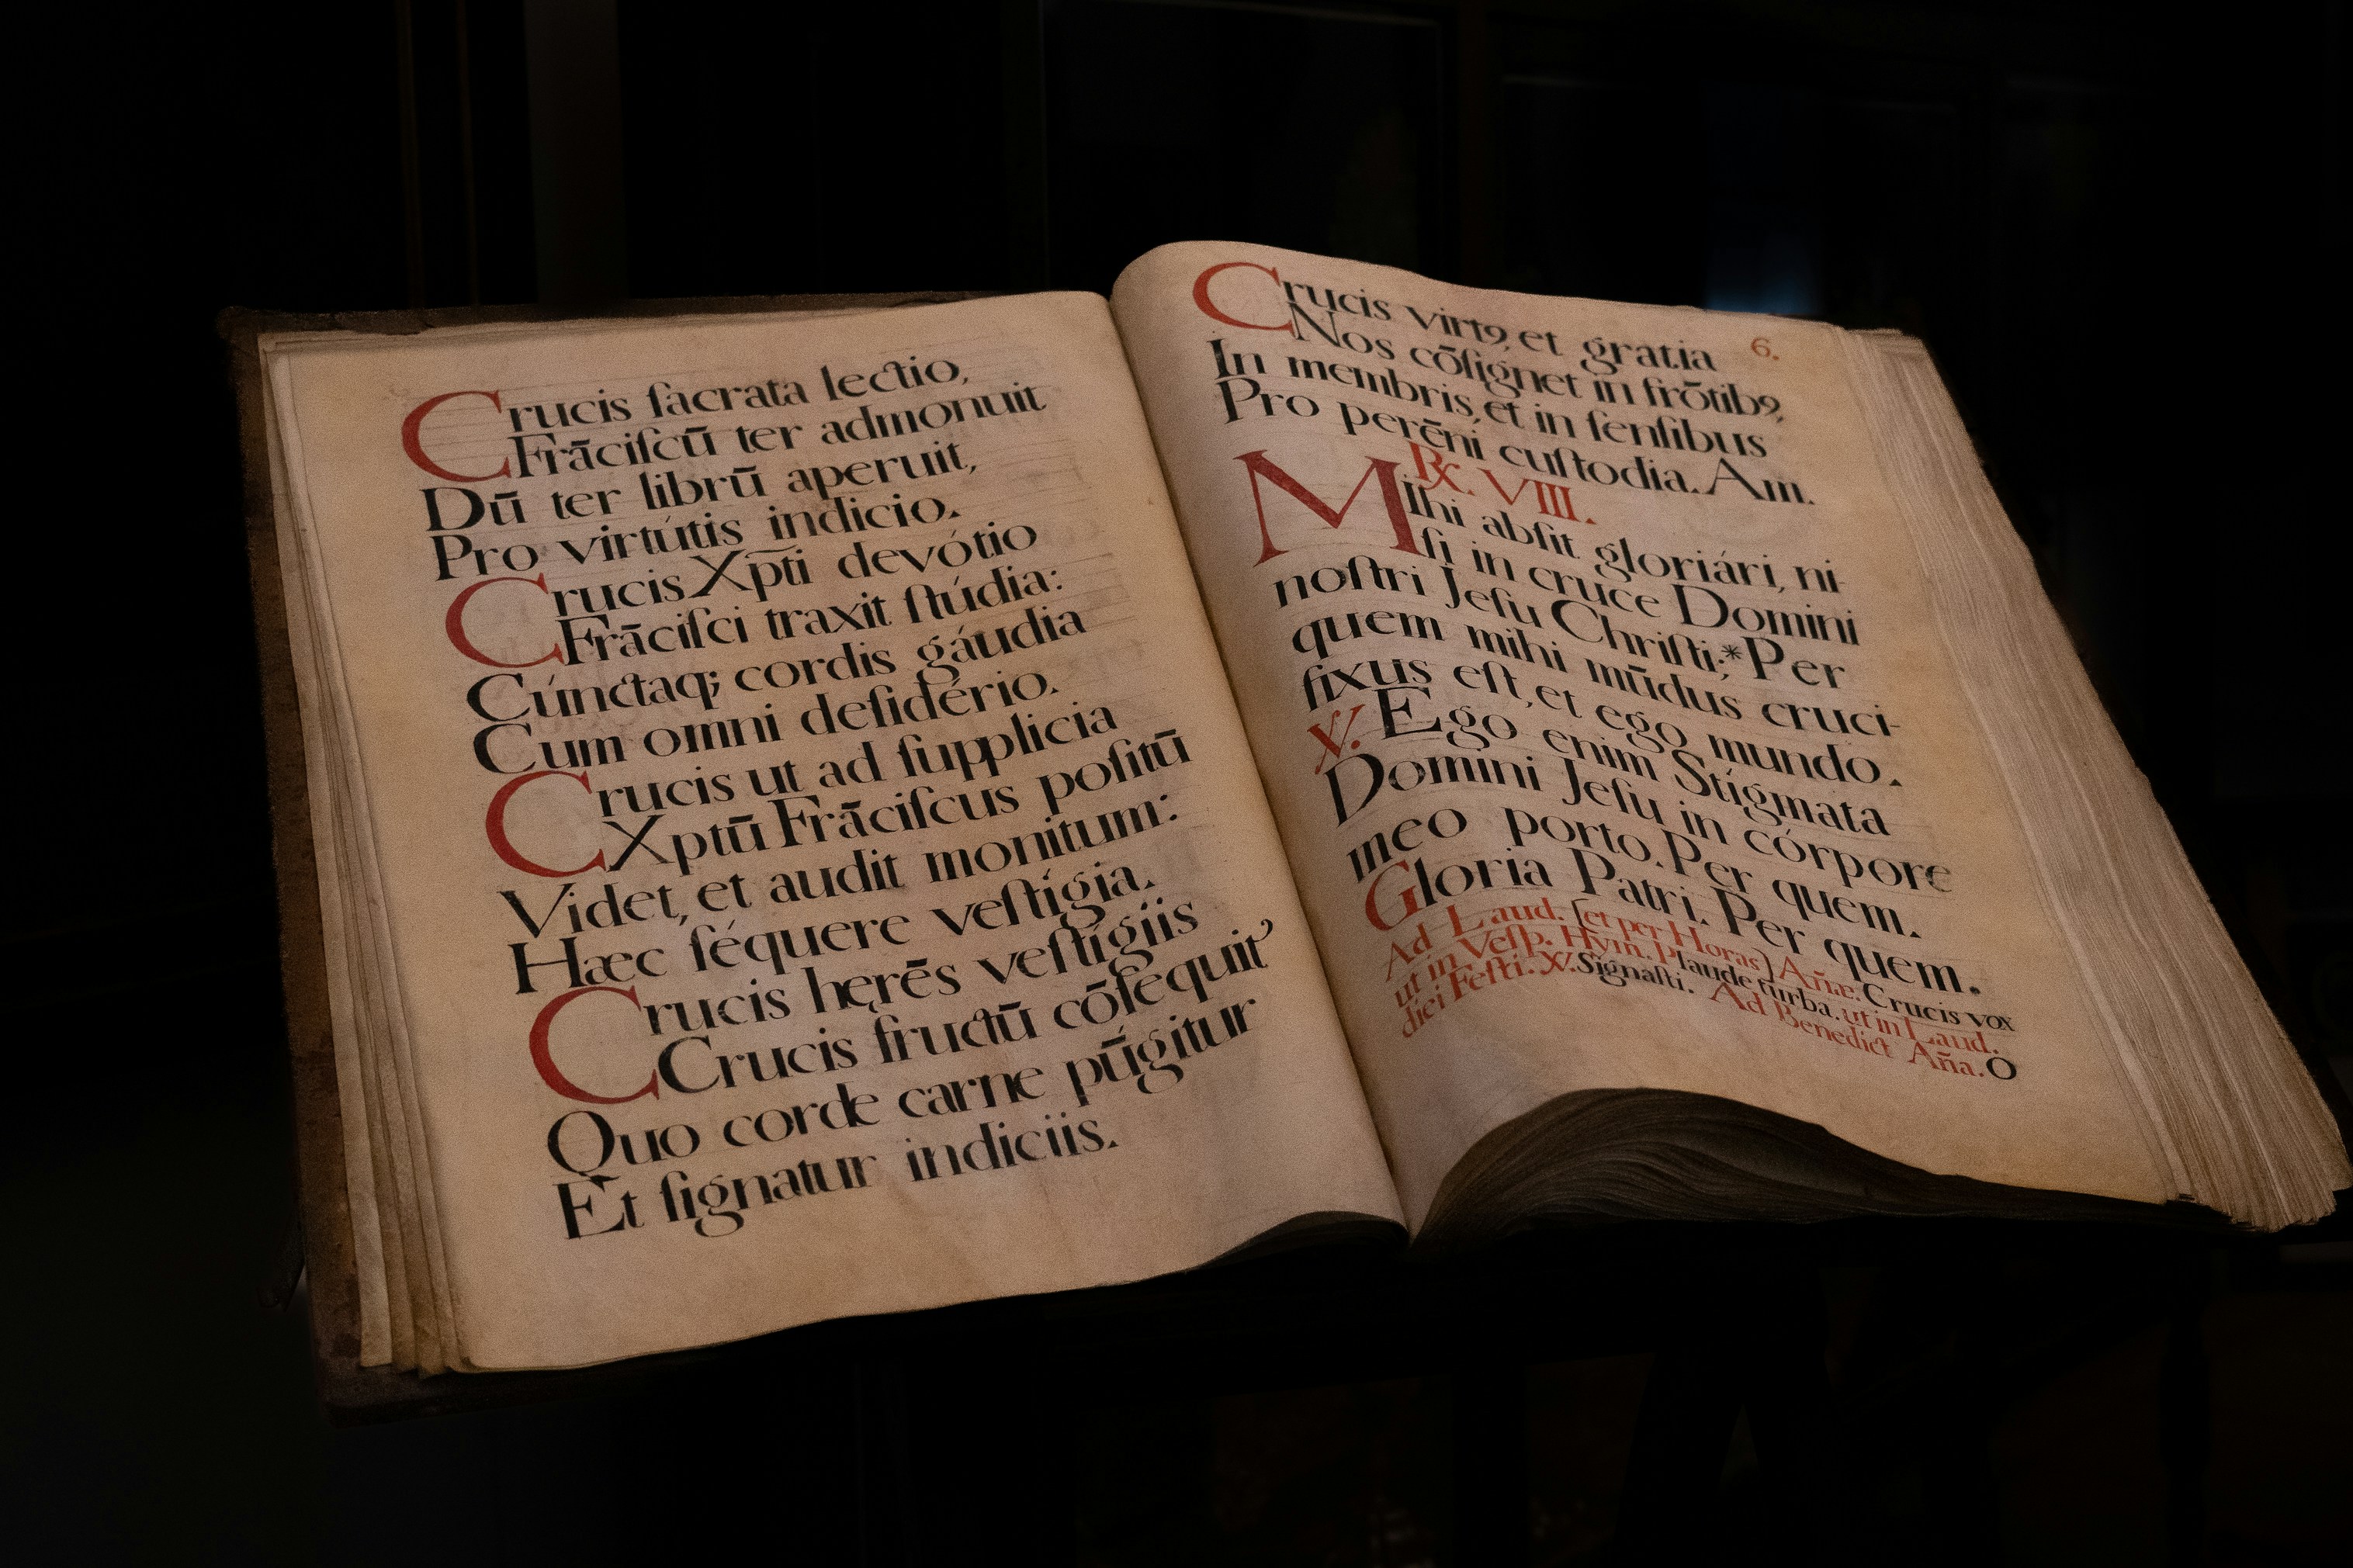 Crucis ſacrata lectio,
Frāciſcū ter admonuit
Dū ter librū aperuit,
Pro virtútis indicio.
Crucis Xp̄ti devótio
Frāciſci traxit ſtúdia:
Cúnctaq; cordis gáudia
Cum omni deſidério.
Crucis ut ad ſupplicia
Xptū Frāciſcus poſitū
Videt, et audit monitum:
Hæc ſéquere veſtígia.
Crucis hęrēs veſtígiis
Crucis fructū cōſequit᾿
Quo corde carne pūgitur
Et ſignatur indiciis.
6.
Crucis virtꝯ, et gratia
Nos cōſignet in frōtibꝯ,
In membris, et in ſenſibus
Pro perēni cuſtodia. Am.
℞. VIII.
Mihi abſit gloriári, ni-
ſi in cruce Domini
noſtri Jeſu Chriſti;* Per
quem mihi mūdus cruci-
fixus eſt, et ego mundo.
℣. Ego enim Stígmata
Domini Jeſu in córpore
meo porto. Per quem.
Gloria Patri. Per quem.
Ad Laud. (et per Horas) Añæ. Crucis vox
ut in Veſp. Hym. Plaude turba. ut in Laud.
diei Feſti. ℣. Signaſti. Ad Benedict Aña. O